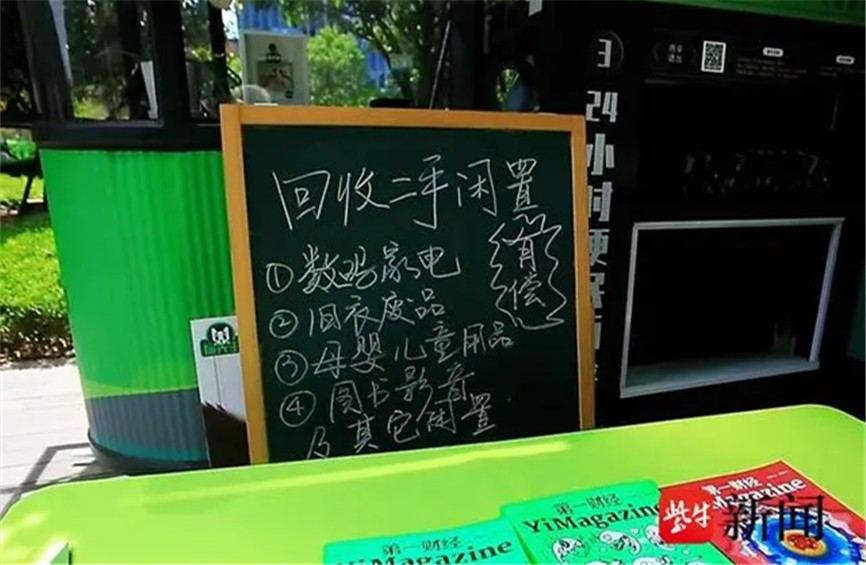 3
24小时便民
回收二手闲置
有偿
①数码家电
②旧衣废品
③母婴儿童用品
④图书影音
及其它闲置
第一财经
YiMagazine
第一财经
YiMagazine
第一财经
YiMagazine
紫牛新闻